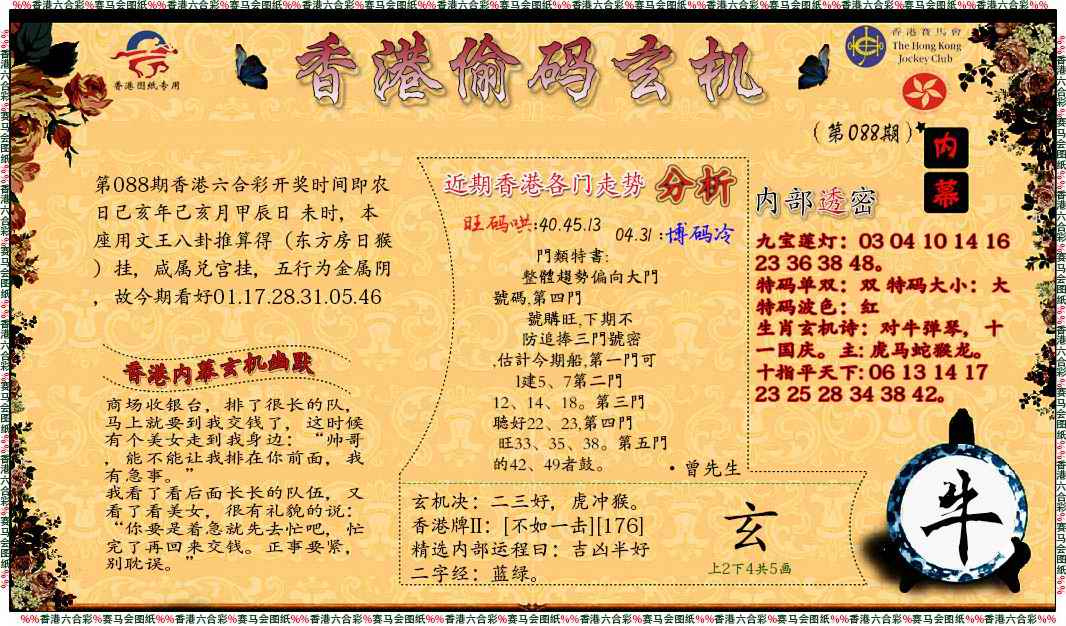 %%香港六合彩%赛马会图纸%%香港六合彩%赛马会图纸%%香港六合彩%赛马会图纸%%香港六合彩%赛马会图纸%%香港六合彩%赛马会图纸%%香港六合彩%赛马会图纸%%香港六合彩%%
香港图纸专用
香港偷码玄机
香港賽馬會
The Hong Kong
Jockey Club
(第088期)
内幕
第088期香港六合彩开奖时间即农
日己亥年己亥月甲辰日 未时，本
座用文王八卦推算得（东方房日猴
）挂，咸属兑宫挂，五行为金属阴
，故今期看好01.17.28.31.05.46
香港内幕玄机幽默
商场收银台，排了很长的队，
马上就要到我交钱了，这时候
有个美女走到我身边：“帅哥
，能不能让我排在你前面，我
有急事。”
我看了看后面长长的队伍，又
看了看美女，很有礼貌的说：
“你要是着急就先去忙吧，忙
完了再回来交钱。正事要紧，
别耽误。”
近期香港各门走势 分析
旺码哄:40.45.13
04.31:博码冷
門類特書:
整體趨勢偏向大門
號碼,第四門
號購旺,下期不
防追捧三門號密
,估計今期船,第一門可
1建5、7第二門
12、14、18。第三門
聽好22、23,第四門
旺33、35、38。第五門
的42、49者鼓。
·曾先生
玄机决：二三好，虎冲猴。
香港牌II：[不如一击][176]
精选内部运程曰：吉凶半好
二字经：蓝绿。
玄
上2下4共5画
内部透密
九宝莲灯：03 04 10 14 16
23 36 38 48。
特码单双：双 特码大小：大
特码波色：红
生肖玄机诗：对牛弹琴，十
一国庆。主: 虎马蛇猴龙。
十指平天下: 06 13 14 17
23 25 28 34 38 42。
牛
%%香港六合彩%赛马会图纸%%香港六合彩%赛马会图纸%%香港六合彩%赛马会图纸%%香港六合彩%赛马会图纸%%香港六合彩%赛马会图纸%%香港六合彩%赛马会图纸%%香港六合彩%赛马会图纸%%